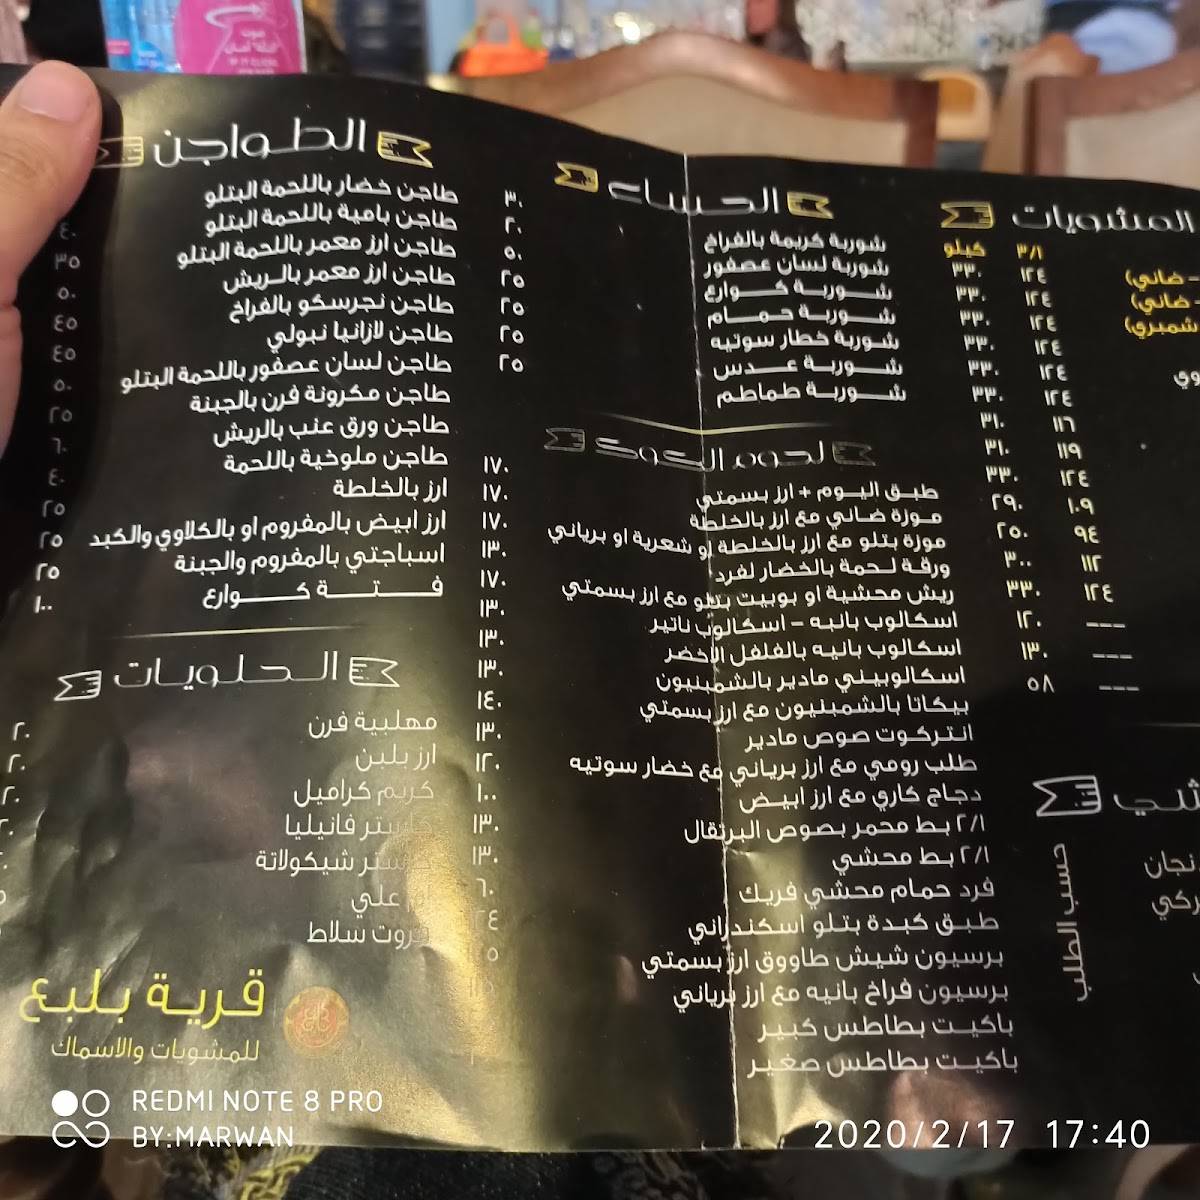 المشويات
٣/١ كيلو
- ضاني) ١٢٤ ٣٣٠
- ضاني) ١٢٤ ٣٣٠
شمبري) ١٢٤ ٣٣٠
١٢٤ ٣٣٠
وي ١٢٤ ٣٣٠
١٢٤ ٣٣٠
١١٦ ٣١٠
١١٩ ٣١٠
١٢٤ ٣٣٠
١٠٩ ٢٩٠
٩٤ ٢٥٠
١١٢ ٣٠٠
١٢٤ ٣٣٠
--- ١٢٠
--- ١٣٠
--- ٥٨
نجان
ركي
حسب الطلب
الحساء
شوربة كريمة بالفراخ ٣٠
شوربة لسان عصفور ٢٠
شوربة كوارع ٥٠
شوربة حمام ٢٥
شوربة خطار سوتيه ٢٥
شوربة عدس ٢٥
شوربة طماطم ٢٥
لحوم الكوك
طبق اليوم + ارز بسمتي ١٧٠
موزة ضاني مع ارز بالخلطة ١٧٠
موزة بتلو مع ارز بالخلطة او شعرية او برياني ١٧٠
ورقة لحمة بالخضار لفرد ١٣٠
ريش محشية او بوبيت بتلو مع ارز بسمتي ١٧٠
اسكالوب بانيه - اسكالوب ناتير ١٣٠
اسكالوب بانيه بالفلفل الاخضر ١٣٠
اسكالوبيني مادير بالشمبنيون ١٣٠
بيكاتا بالشمبنيون مع ارز بسمتي ١٤٠
انتركوت صوص مادير ١٣٠
طلب رومي مع ارز برياني مع خضار سوتيه ١٢٠
دجاج كاري مع ارز ابيض ١٠٠
٢/١ بط محمر بصوص البرتقال ١٣٠
٢/١ بط محشي ١٣٠
فرد حمام محشي فريك ٦٠
طبق كبدة بتلو اسكندراني
برسيون شيش طاووق ارز بسمتي
برسيون فراخ بانيه مع ارز برياني
باكيت بطاطس كبير
باكيت بطاطس صغير
الطواجن
طاجن خضار باللحمة البتلو
طاجن بامية باللحمة البتلو ٤٠
طاجن ارز معمر باللحمة البتلو ٣٥
طاجن ارز معمر بالريش ٥٠
طاجن نجرسكو بالفراخ ٤٥
طاجن لازانيا نبولي ٤٥
طاجن لسان عصفور باللحمة البتلو ٥٠
طاجن مكرونة فرن بالجبنة ٢٥
طاجن ورق عنب بالريش ٦٠
طاجن ملوخية باللحمة ٤٠
ارز بالخلطة ٢٥
ارز ابيض بالمفروم او بالكلاوي والكبد ٢٥
اسباجتي بالمفروم والجبنة ٢٥
فتة كوارع ١٠٠
الحلويات
مهلبية فرن ٢٠
ارز بلبن ٢٠
كريم كراميل ٢٠
كاستر فانيليا
كاستر شيكولاتة
ام علي
فروت سلاط
قرية بلبع
للمشويات والاسماك
REDMI NOTE 8 PRO
BY:MARWAN
2020/2/17 17:40